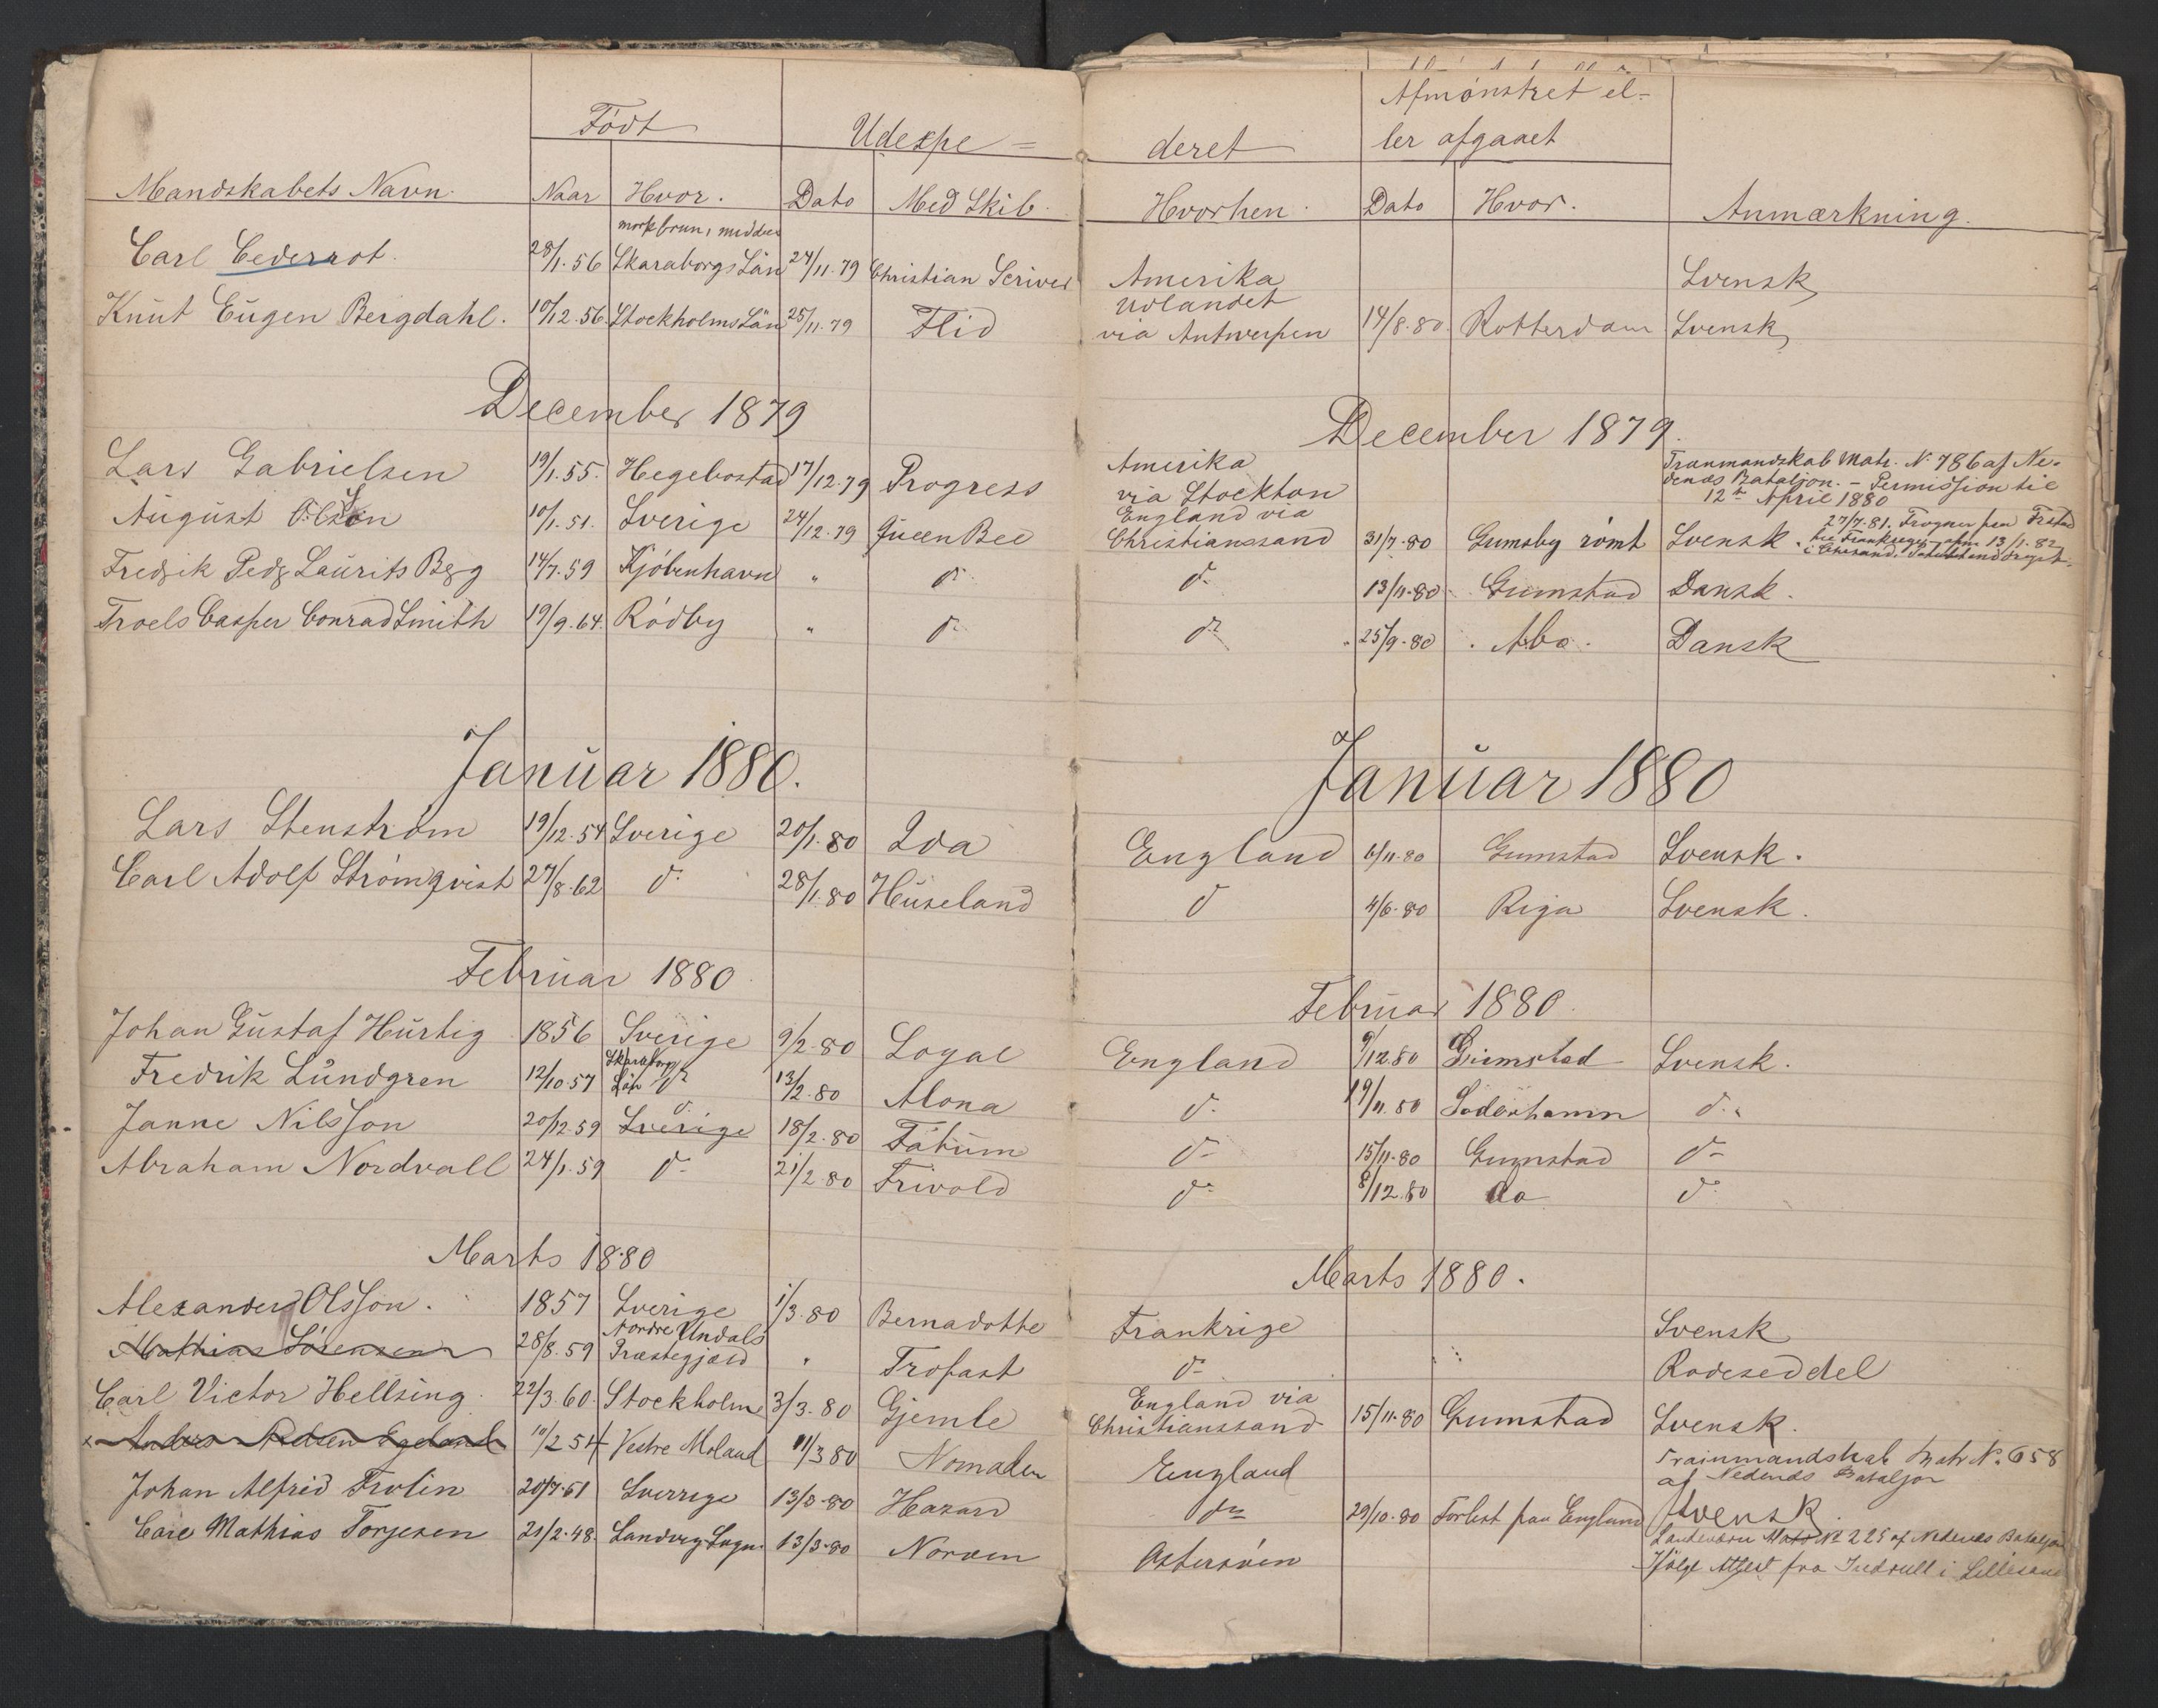 Født Udexpe= deret Afmønstret el=
ler afgaaet
Mandskabets Navn. Naar Hvor. Dato Med Skib. Hvorhen. Dato Hvor. Anmærkning.
mørkbrun, middels
Carl Cederrot. 28/1.56 Skaraborgs Län 24/11.79 Christian Scriver Amerika Svensk
Knut Eugen Bergdahl. 10/12.56. Stockholms Län 25/11.79 Flid Udlandet
via Antwerpen 14/8.80. Rotterdam Svensk
December 1879 December 1879.
Lars Gabrielsen 19/1.55. Hegebostad 17/12.79 Progress Amerika
via Stockton Trænmandskab Matr. No 786 af Ne-
denæs Bataljon. - Permission til
12te April 1880
August Olsson 10/1.51. Sverige 24/12.79 Queen Bee England via
Christianssand 31/7.80 Grimsby rømt Svensk. 27/7.81. Frogner fra Frstad
til Frankrige afm. 13/1.82
i Chrsand.
Fredrik Pedr Laurits Berg 14/7.59 Kjøbenhavn " do do 13/11.80 Grimstad Dansk.
Troels Casper Conrad Smith 19/9.64. Rødby " do do 25/9.80 Abo. Dansk
Januar 1880. Januar 1880
Lars Stenstrøm 19/12.54 Sverige 20/1.80 Ida England 6/11.80 Grimstad Svensk.
Carl Adolf Strømqvist 27/8.62 do 28/1.80 Huseland do 4/6.80 Riga Svensk.
Februar 1880 Februar 1880.
Johan Gustaf Hurtig 1856 Sverige 9/2.80 Logal England 9/12.80 Grimstad Svensk.
Fredrik Lundgren 12/10.57 Skaraborgs
Län do 13/2.80 Alona do 19/11.80 Søderhamn do
Janne Nilsson 20/12.59 Sverige do 18/2.80 Fatum do 15/11.80 Grimstad do
Abraham Nordvall 24/1.59 do 21/2.80 Frivold do 8/12.80 do do
Marts 1880 Marts 1880.
Alexander Olsson. 1857 Sverige 1/3.80 Bernadotte Frankrige Svensk
Mathias Sørensen 28/8.59 Nordre Undals
Præstegjæld " Trofast do Rodeseddel
Carl Victor Hellsing. 22/3.60. Stockholm 3/3.80 Gjemle England via
Christianssand 15/11.80 Grimstad Svensk.
x Anders Nilsen Egeland 10/2 54 Vestre Moland 11/3 80 Nomaden England Trainmandskab Matr No. 658
af Nedenæs Bataljon
Johan Alfrid Frolin 20/7.61 Sverrige 13/3.80 Hazard do 29/10.80 Forlist paa England Svensk.
Carl Mathias Torjesen 21/2.48. Landvig Sogn 13/3.80 Norden Østersøen Landværn Matr No 225 af Nedenæs Bataljon
Ifølge Attest fra Indrull i Lillesand